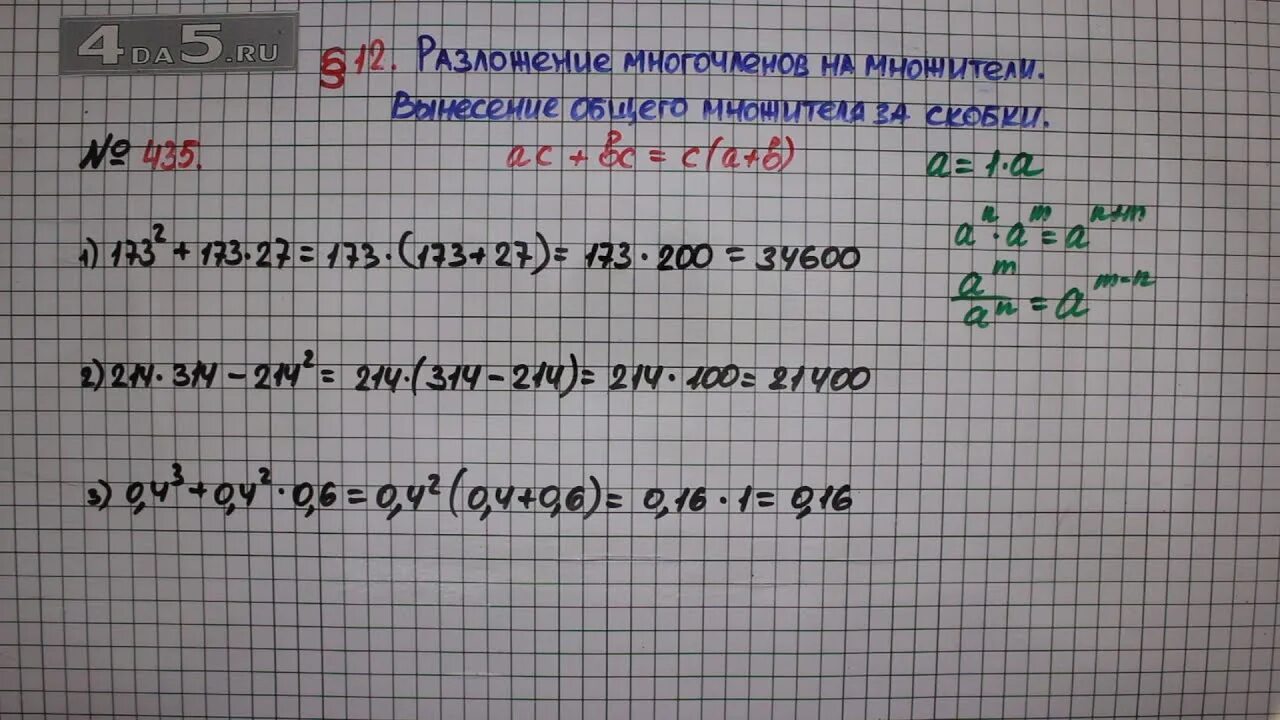 4DA5.RU
§12. Разложение многочленов на множители.
Вынесение общего множителя за скобки.
№ 435.
ac + bc = c(a+b)
a = 1·a
aⁿ·aᵐ = aⁿ⁺ᵐ
aᵐ/aⁿ = aᵐ⁻ⁿ
1) 173² + 173·27 = 173·(173+27) = 173·200 = 34600
2) 214·314 – 214² = 214·(314–214) = 214·100 = 21400
3) 0,4³ + 0,4²·0,6 = 0,4²(0,4+0,6) = 0,16·1 = 0,16